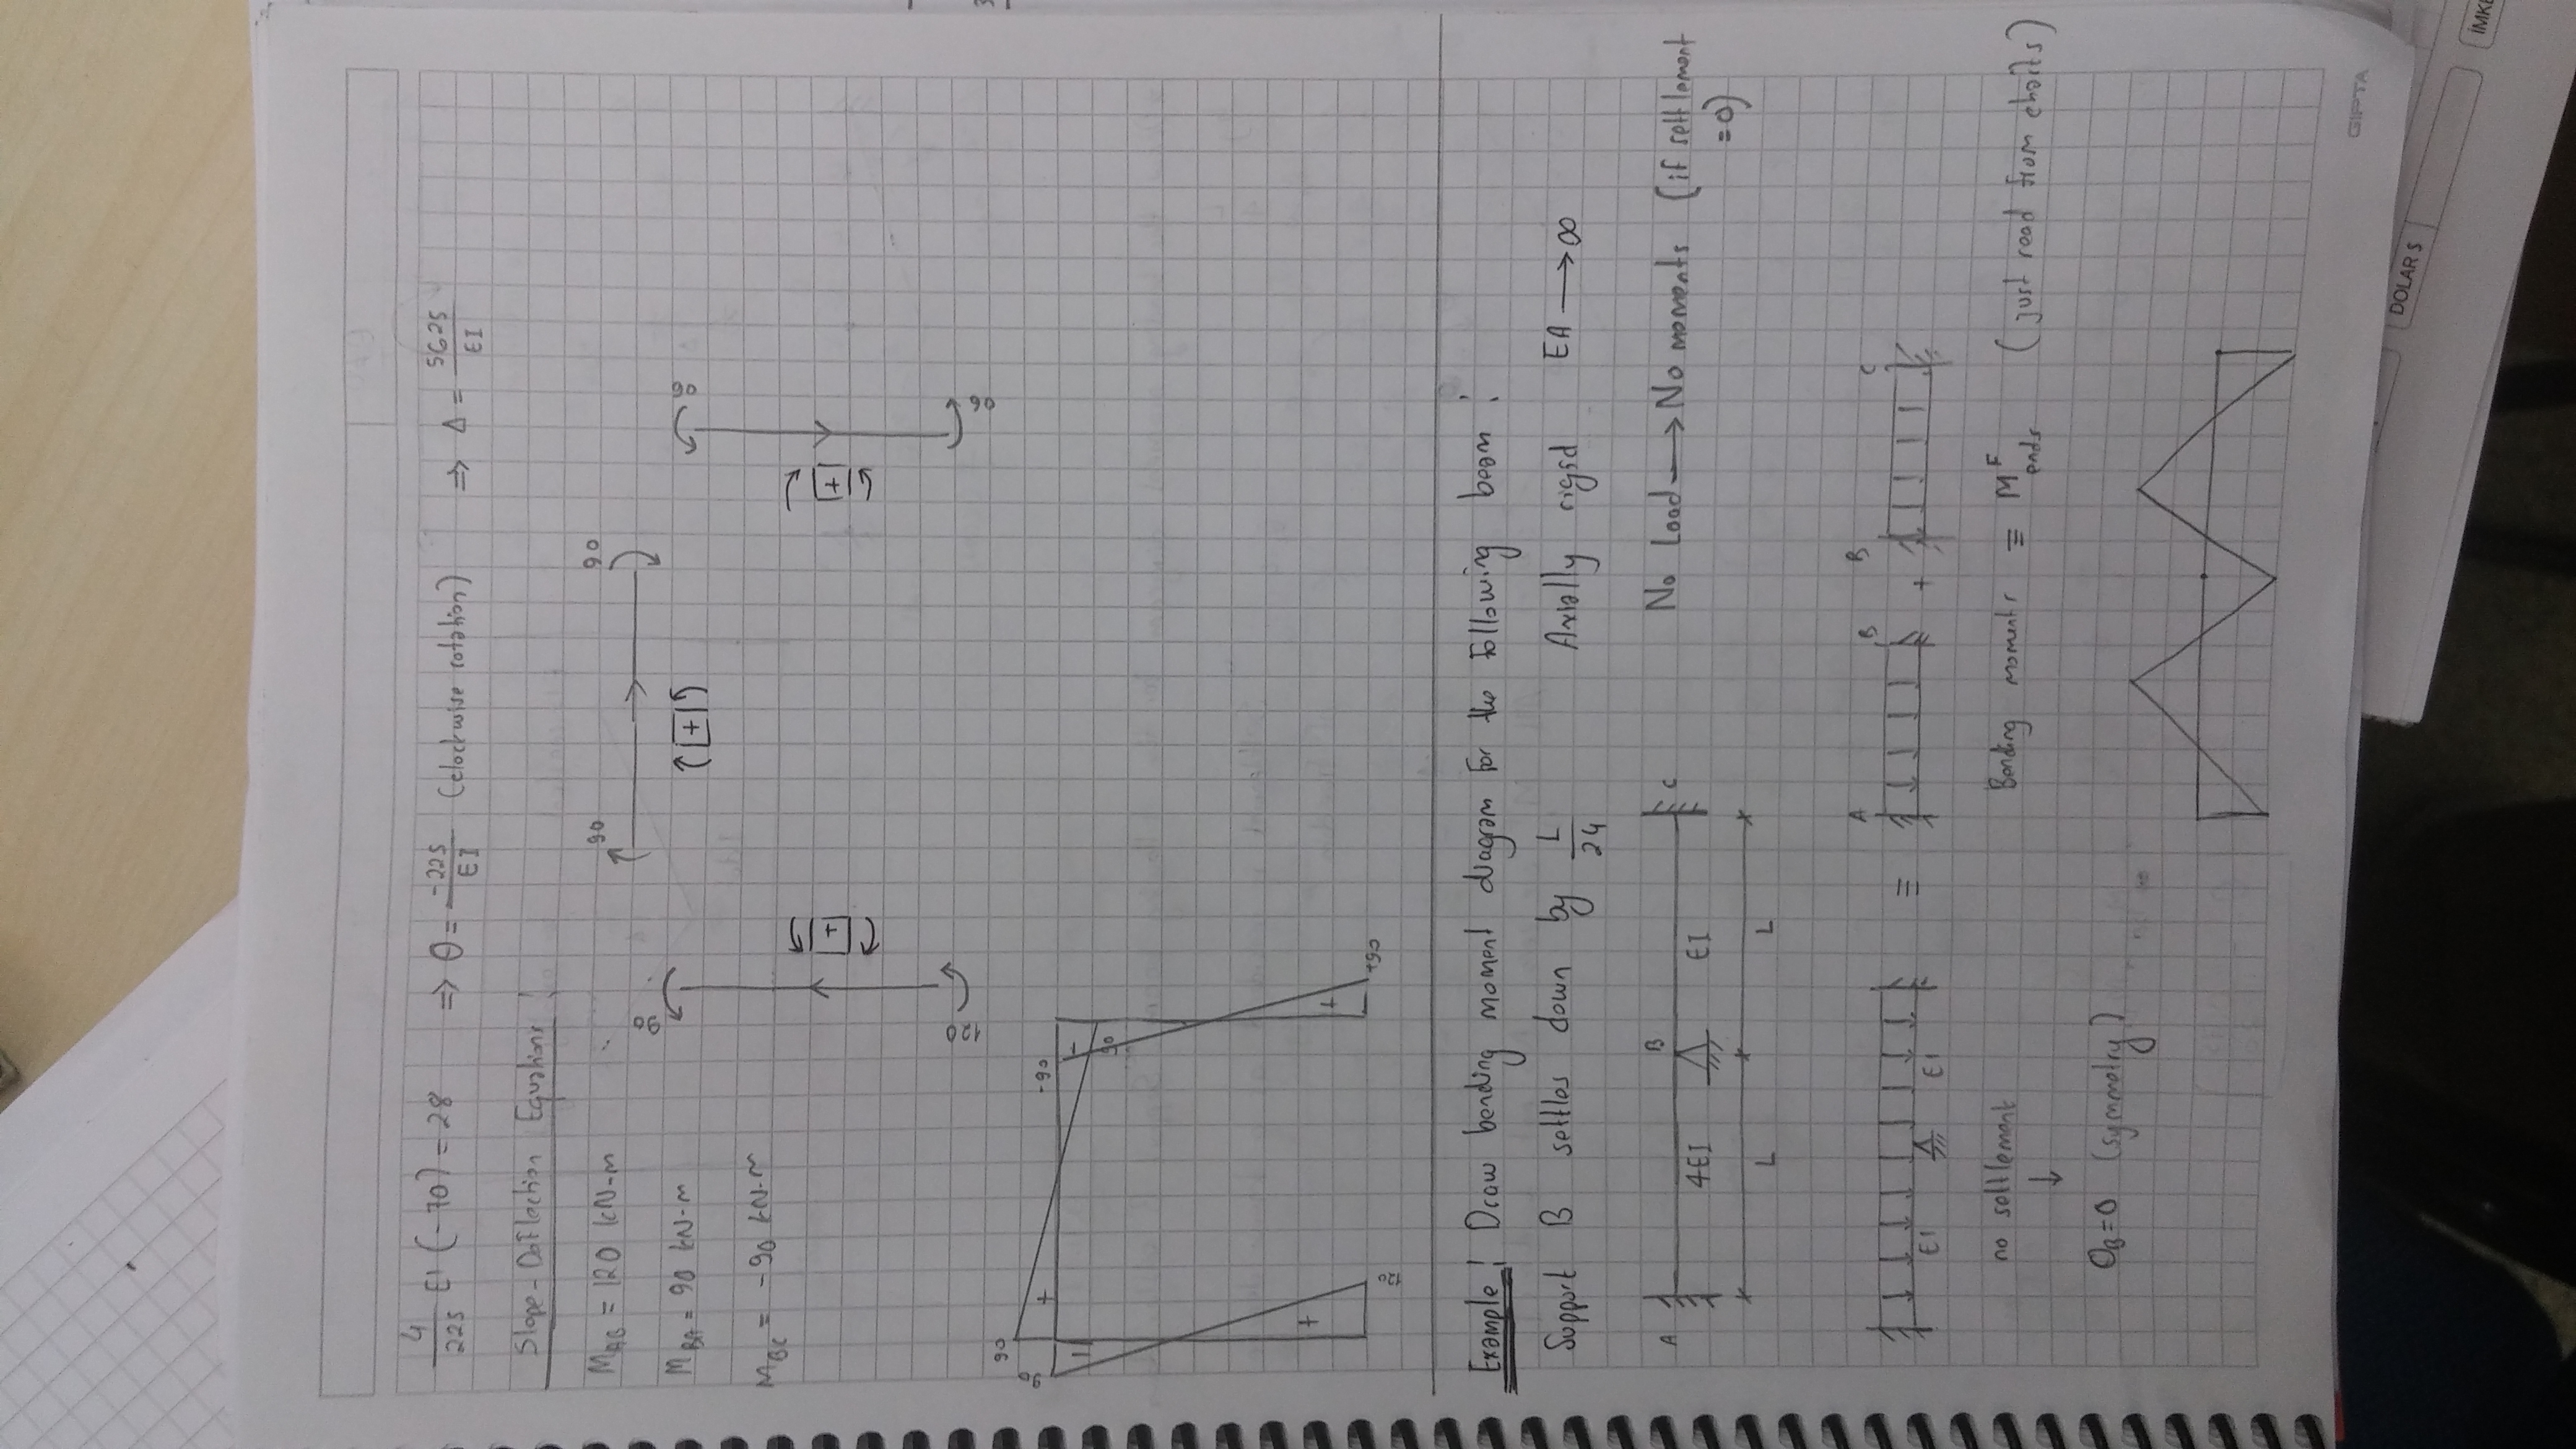 4/225 EI (-70) = 28 ⇒ θ = -225/EI (clockwise rotation) ⇒ Δ = 5625/EI
Slope-Deflection Equations:
M_AB = 120 kN-m
90 90
M_BA = 90 kN-m
90 (+) 90
M_BC = -90 kN-m
+ +
120 90
90
90 + -90
- -
90
+ +
120 +90
Example: Draw bending moment diagram for the following beam:
Support B settles down by L/24 Axially rigid EA → ∞
A B C No Load → No moments (if settlement
4EI EI = 0)
L L
A B B C
EI EI ≡ +
no settlement Bending moments ≡ M^F_ends (just read from charts)
↓
θ_B = 0 (symmetry)
GIPTA
DOLAR $